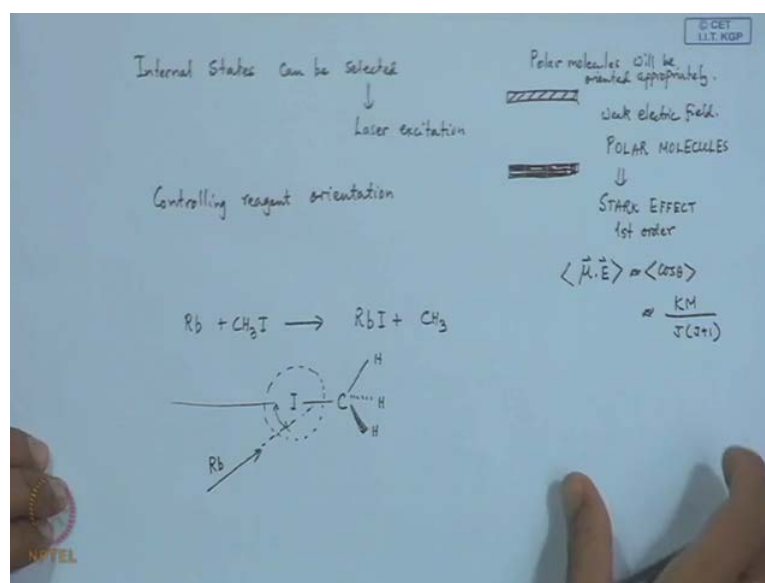 © CET
I.I.T. KGP
Internal States can be selected
↓
Laser excitation
Controlling reagent orientation
Rb + CH3I ⟶ RbI + CH3
I C H
H
H
Rb
Polar molecules will be
oriented appropriately.
weak electric field.
POLAR MOLECULES
⇓
STARK EFFECT
1st order
⟨μ⃗.E⃗⟩ ∝ ⟨cosθ⟩
∝ KM
J(J+1)
NPTEL